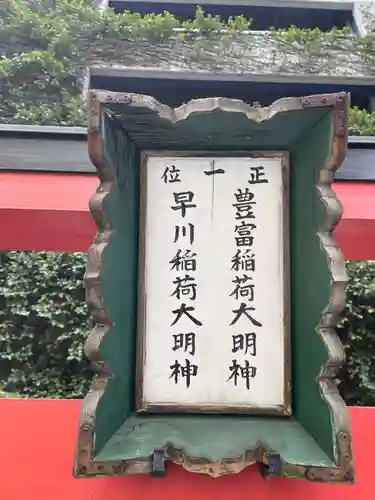 正一位
豊富稲荷大明神
早川稲荷大明神